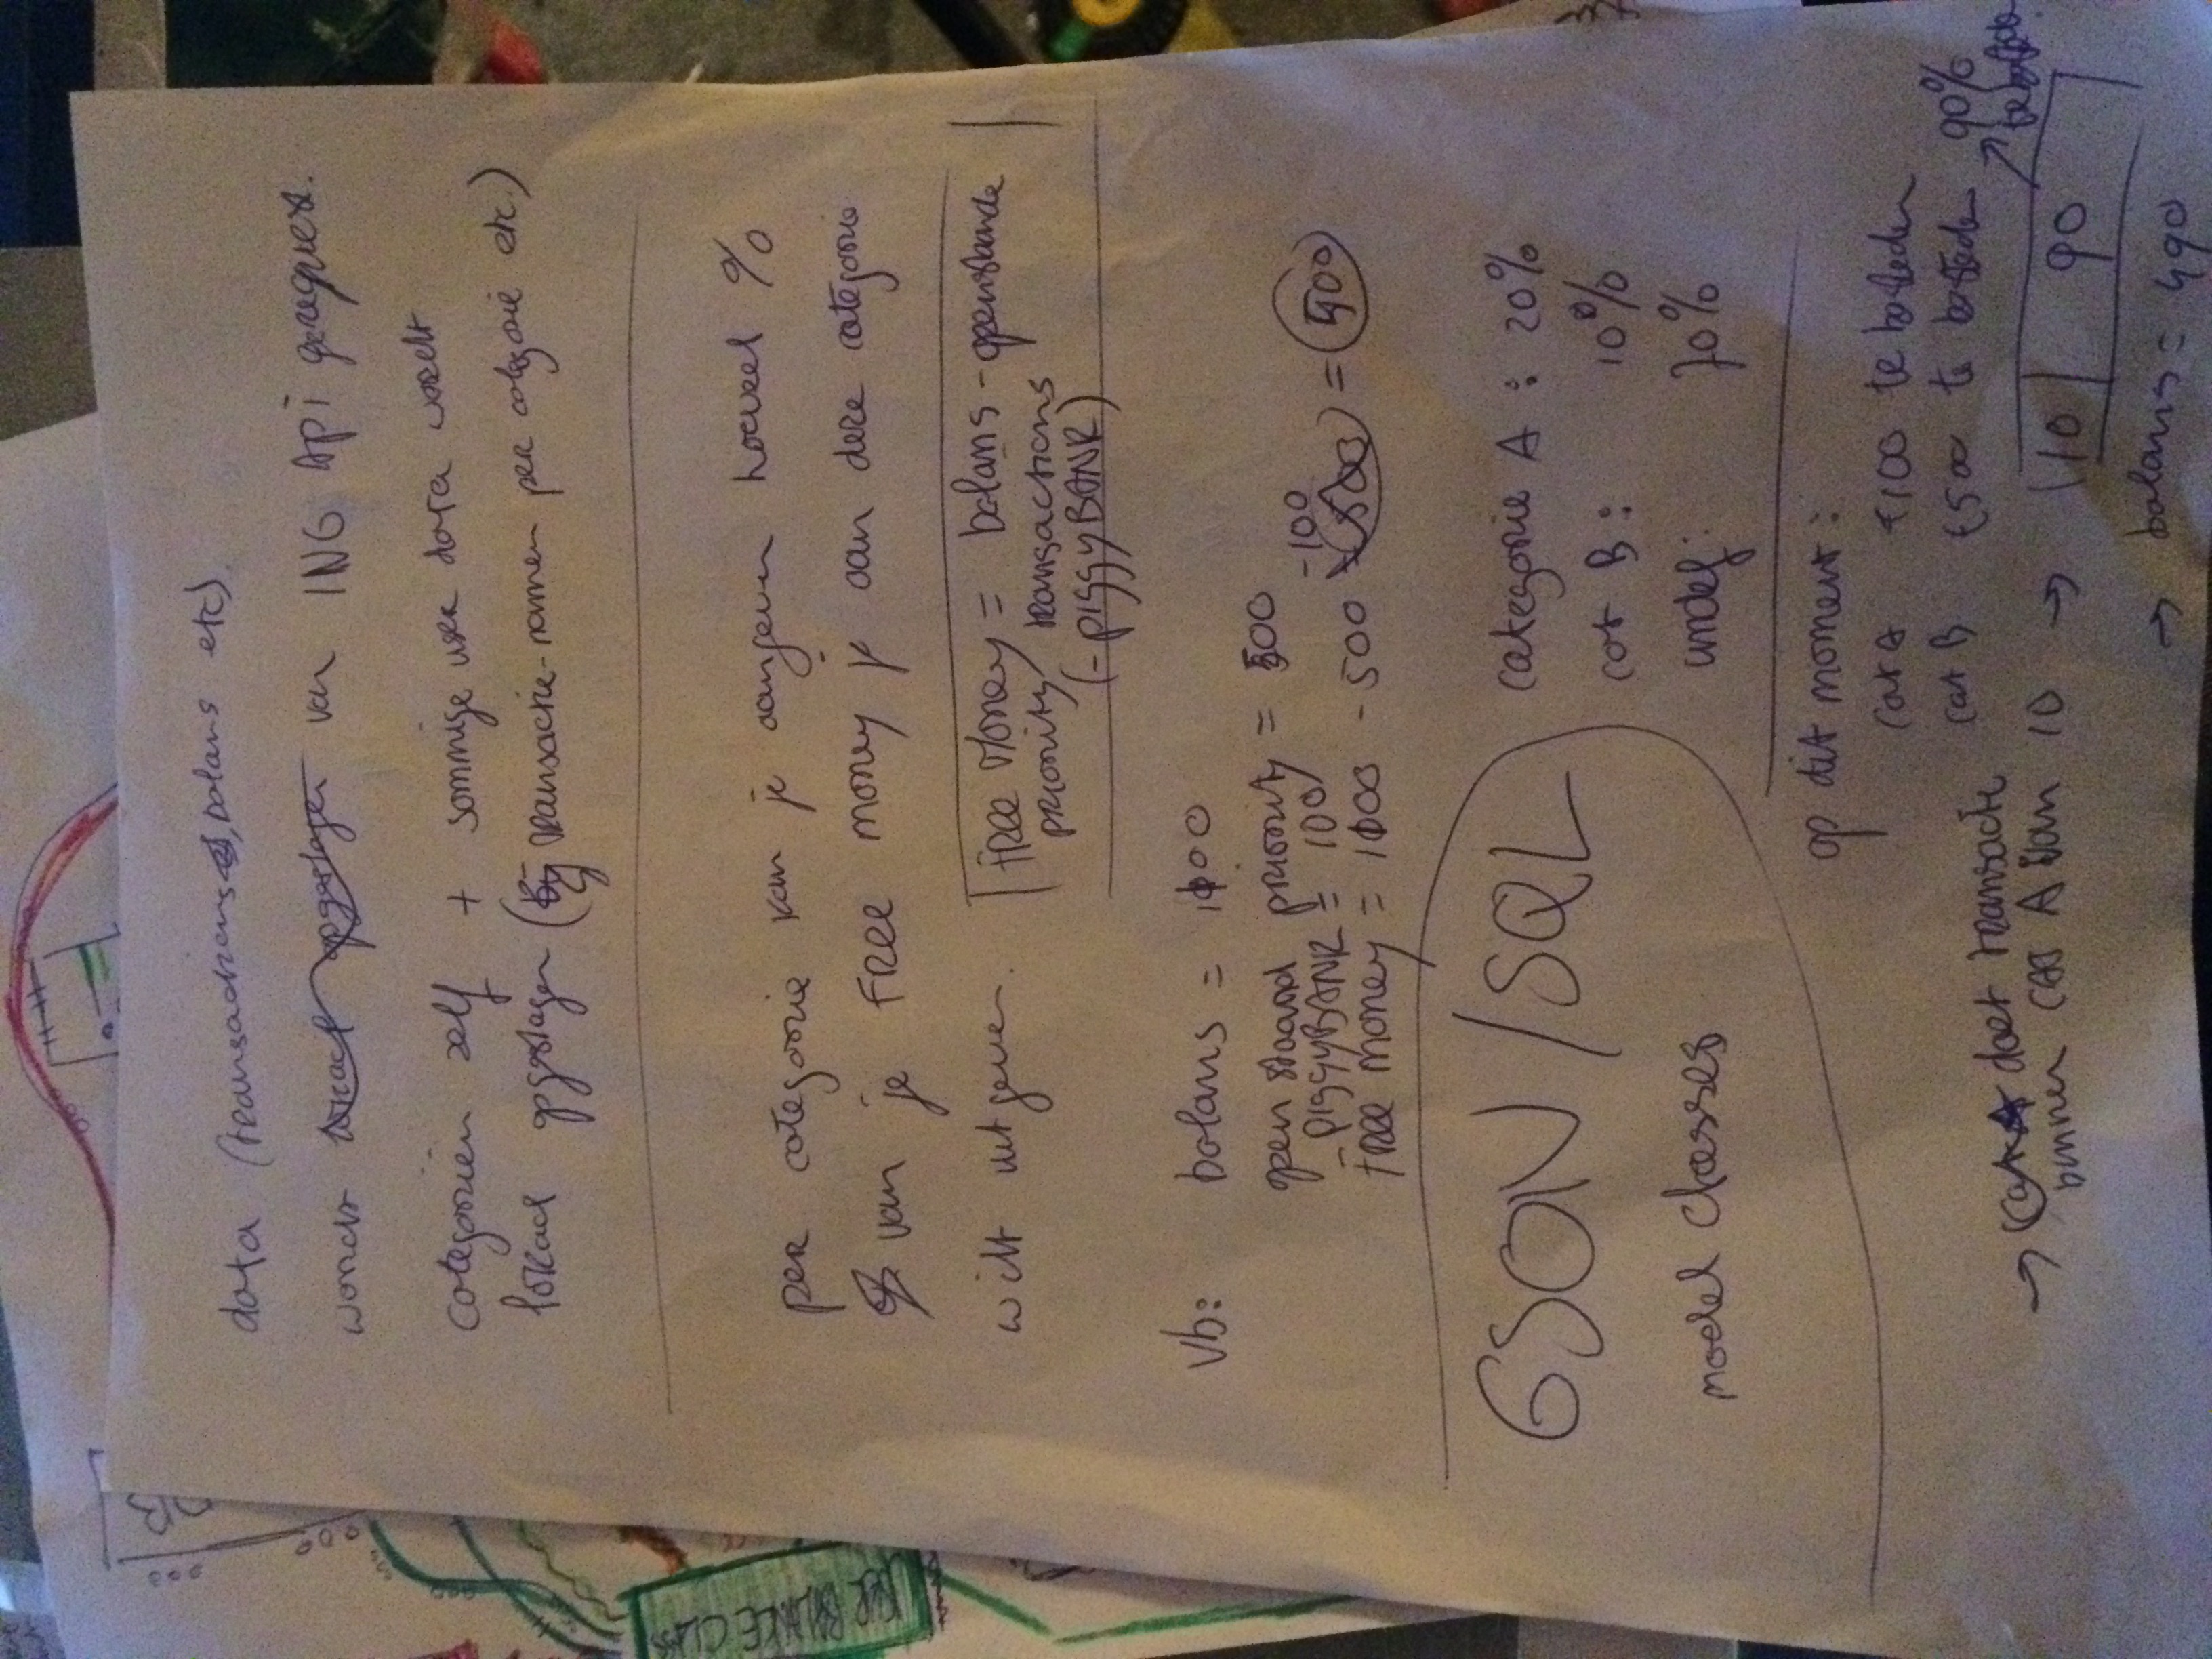 data (transactions, balans etc).
wordt lokaal opgeslagen van ING Api gerequest.
categoriën zelf + sommige user data wordt
lokaal opgeslagen (transactie-namen per categorie etc.)
per categorie kan je aangeven hoeveel %
van je FREE money je aan deze categorie
wilt uitgeven.
free Money = balans - openstaande
priority transactions
(- piggyBANK)
Vb: balans = 1100
openstaand priority = 500
- PiggyBANK = 100
-100
free money = 1100 - 500 = 500
GSON / SQL
model classes
categorie A : 20%
cat B : 10%
undef: 70%
op dit moment :
cat A €100 te besteden
cat B €500 te besteden
90%
te besteden
→ doet transactie
binnen CAT A van 10 → 10 90
→ balans = 490
USR BALANCE CLASS
DB